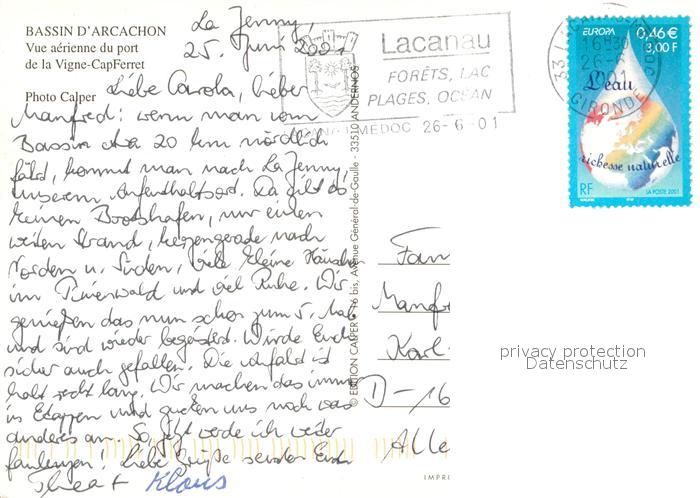 BASSIN D'ARCACHON
Vue aérienne du port
de la Vigne-CapFerret
Photo Calper
La Jenny,
25. Juni 2001
Liebe Carola, lieber
Manfred: wenn man vom
Bassin 20 km nördlich
fährt, kommt man nach La Jenny,
unserem Aufenthaltsort. Da gibt es
keinen Bootshafen, nur einen
weiten Strand, kerzengerade nach
Norden u. Süden, viele kleine Häuschen
im Pinienwald und viel Ruhe. Wir
genießen das nun schon zum 5. Mal
und sind wieder begeistert. Würde Euch
sicher auch gefallen. Die Anfahrt ist
halt recht lang. Wir machen das immer
in Etappen und gucken uns noch was
anderes an. So, jetzt werde ich weiter
faulenzen! Liebe Grüße senden Euch
Thea + Klaus
© EDITION CALPER 16 bis, Avenue Général-de-Gaulle - 33510 ANDERNOS
Lacanau
FORÊTS, LAC
PLAGES, OCÉAN
MEDOC 26-6-01
16H30
26-6
GIRONDE
EUROPA
0,46 €
3,00 F
L'eau
richesse naturelle
RF
LA POSTE 2001
Fam
Manfr
Karl-
D-16
Alle
IMPRI
privacy protection
Datenschutz